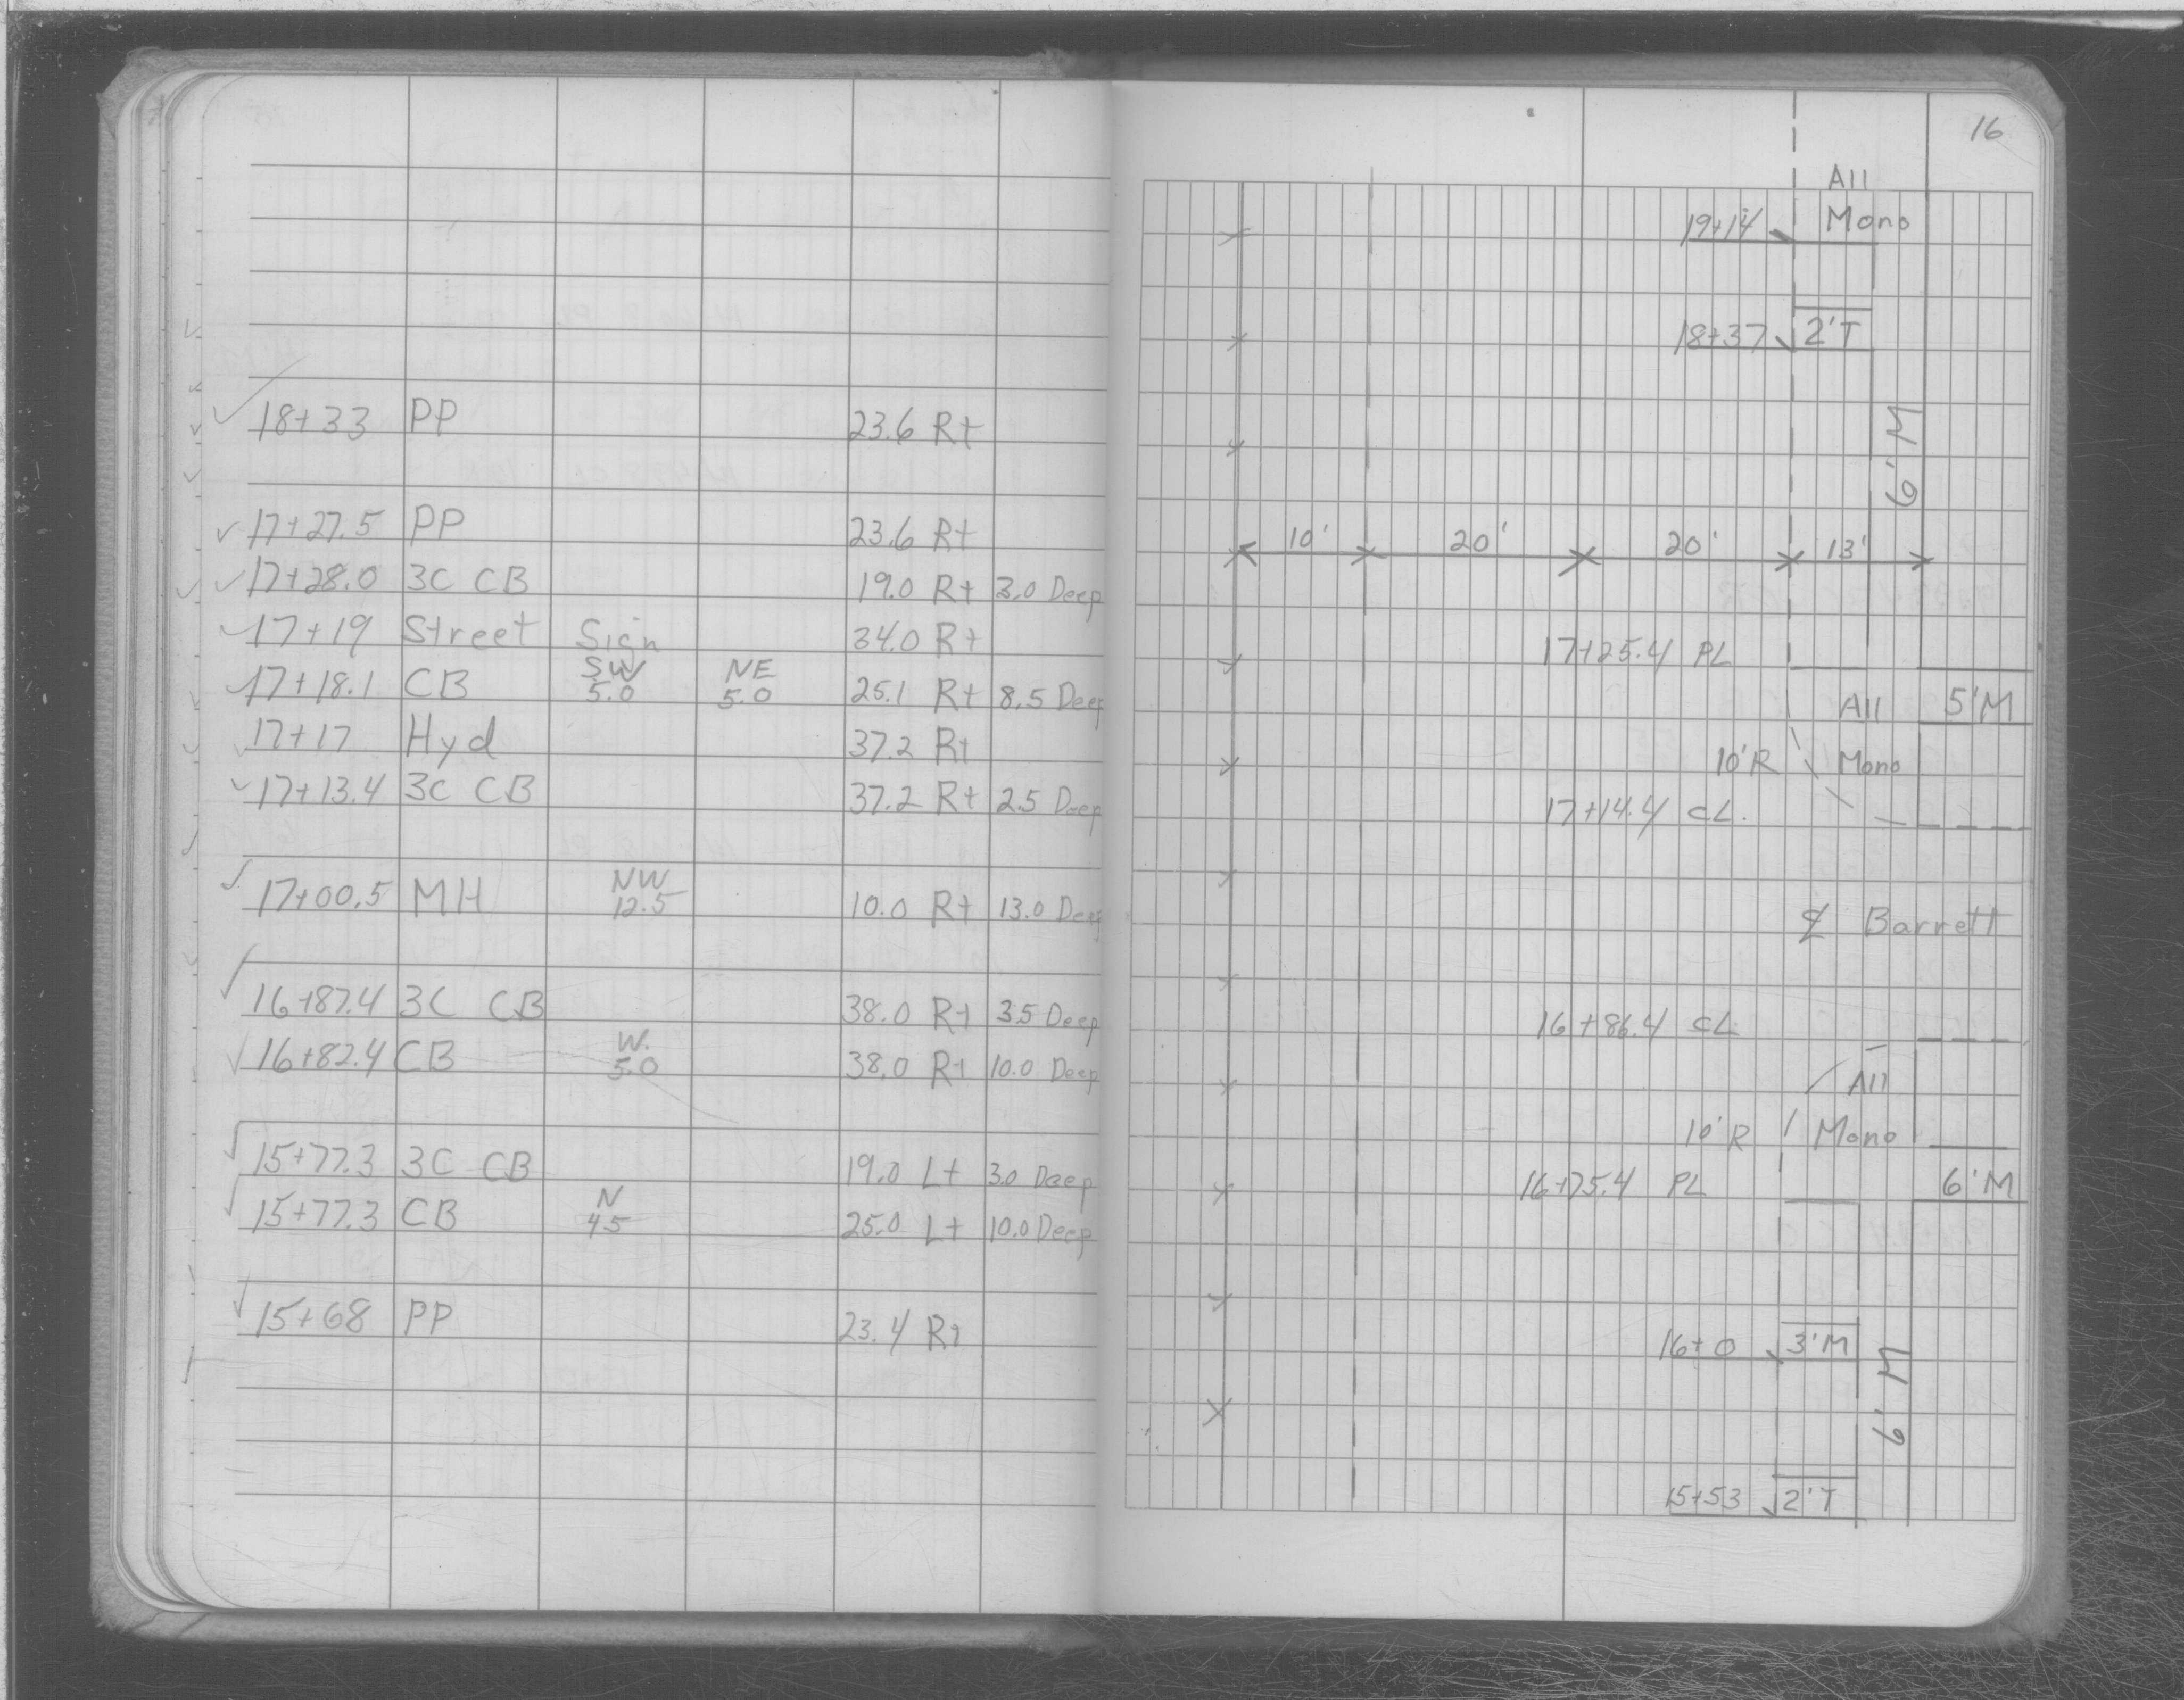 18+33 PP 23.6 Rt
17+27.5 PP 23.6 Rt
17+28.0 3C CB 19.0 Rt 3.0 Deep
17+19 Street Sign 34.0 Rt
SW NE
17+18.1 CB 5.0 5.0 25.1 Rt 8.5 Deep
17+17 Hyd 37.2 Rt
17+13.4 3C CB 37.2 Rt 2.5 Deep
NW
17+00.5 MH 12.5 10.0 Rt 13.0 Deep
16+87.4 3C CB 38.0 Rt 3.5 Deep
W.
16+82.4 CB 5.0 38.0 Rt 10.0 Deep
15+77.3 3C CB 19.0 Lt 3.0 Deep
N
15+77.3 CB 4.5 25.0 Lt 10.0 Deep
15+68 PP 23.4 Rt
16
All
19+14 Mono
18+37 2'T
6'M
10' 20' 20' 13'
17+25.4 PL
All 5'M
10'R Mono
17+14.4 CL.
℄ Barrett
16+86.4 CL
All
10'R Mono
16+75.4 PL 6'M
16+0 3'M
6'M
15+53 2'T